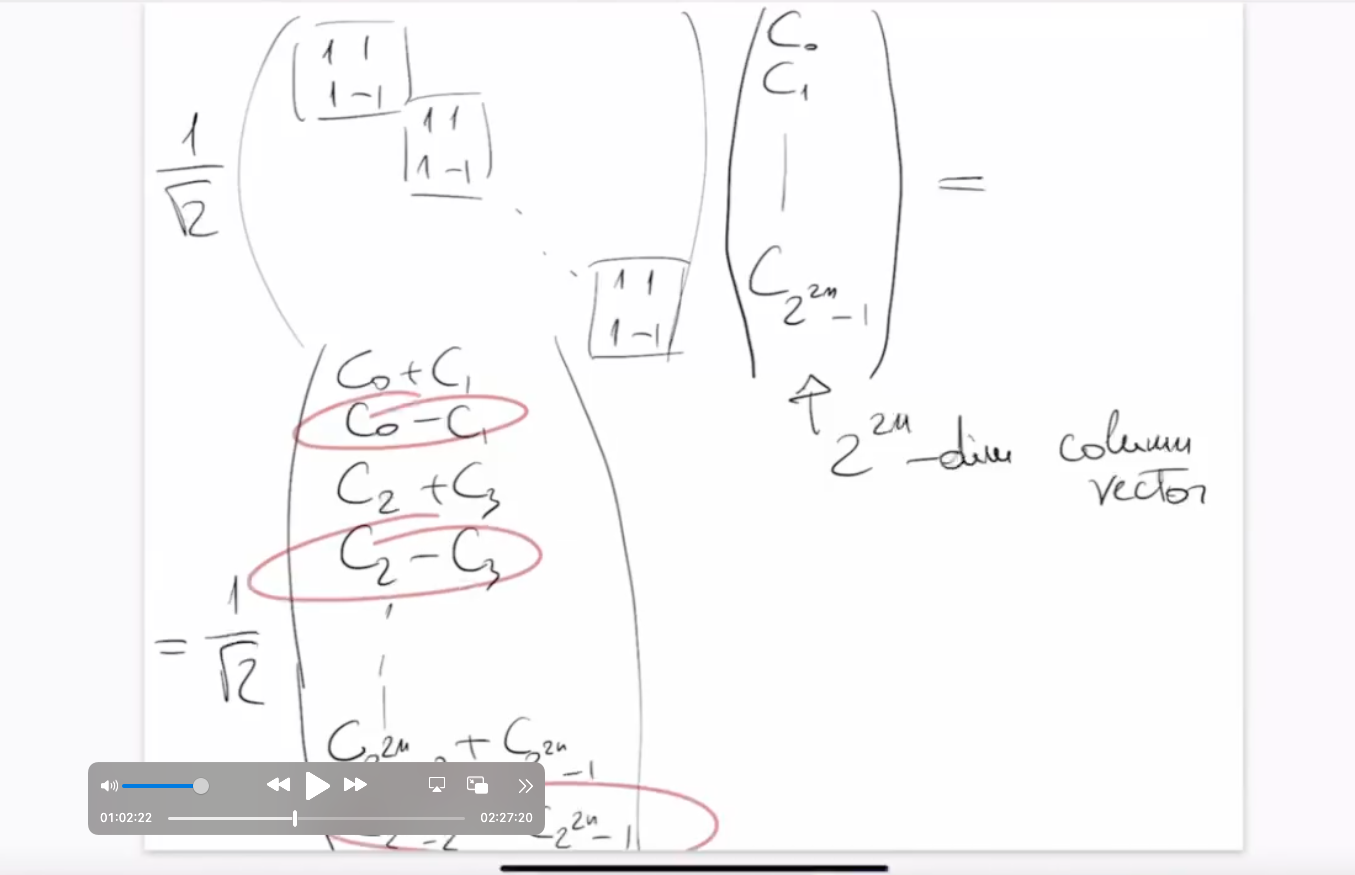 1/√2 ( [1 1
1 -1]
[1 1
1 -1]
⋱
[1 1
1 -1] ) ( C₀
C₁
|
C_{2^{2n}-1} ) =
↑
2^{2n}-dim column
vector
= 1/√2 ( C₀ + C₁
C₀ - C₁
C₂ + C₃
C₂ - C₃
+ C_{2^{2n}-1}
C_{2^{2n}-1} )
01:02:22
02:27:20